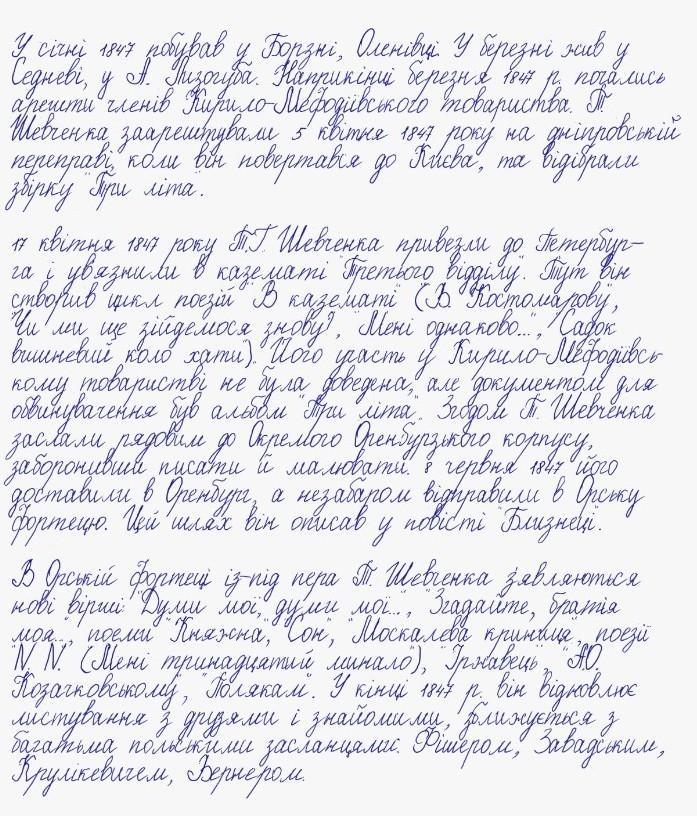 У січні 1847 побував у Борзні, Оленівці. У березні жив у
Седневі, у А. Лизогуба. Наприкінці березня 1847 р. почались
арешти членів Кирило-Мефодіївського товариства. Т.
Шевченка заарештували 5 квітня 1847 року на дніпровській
переправі, коли він повертався до Києва, та відібрали
збірку "Три літа".
17 квітня 1847 року Т.Г. Шевченка привезли до Петербур-
га і ув'язнили в казематі "Третього відділу". Тут він
створив цикл поезій "В казематі" ("В. Костомарову",
"Чи ми ще зійдемося знову?", "Мені однаково...", "Садок
вишневий коло хати"). Його участь у Кирило-Мефодіївсь-
кому товаристві не була доведена, але документом для
обвинувачення був альбом "Три літа". Згодом Т. Шевченка
заслали рядовим до Окремого Оренбурзького корпусу,
заборонивши писати й малювати. 8 червня 1847 його
доставили в Оренбург, а незабаром відправили в Орську
фортецю. Цей шлях він описав у повісті "Близнеці".
В Орській фортеці із-під пера Т. Шевченка з'являються
нові вірші: "Думи мої, думи мої...", "Згадайте, братія
моя...", поеми "Княжна", "Сон", "Москалева криниця", поезії
"N. N." (Мені тринадцятий минало"), "Іржавець", "А.О.
Козачковському", "Полякам". У кінці 1847 р. він відновлює
листування з друзями і знайомими, ближується з
багатьма польськими засланцями: Фішером, Завадським,
Крулікевичем, Вернером.